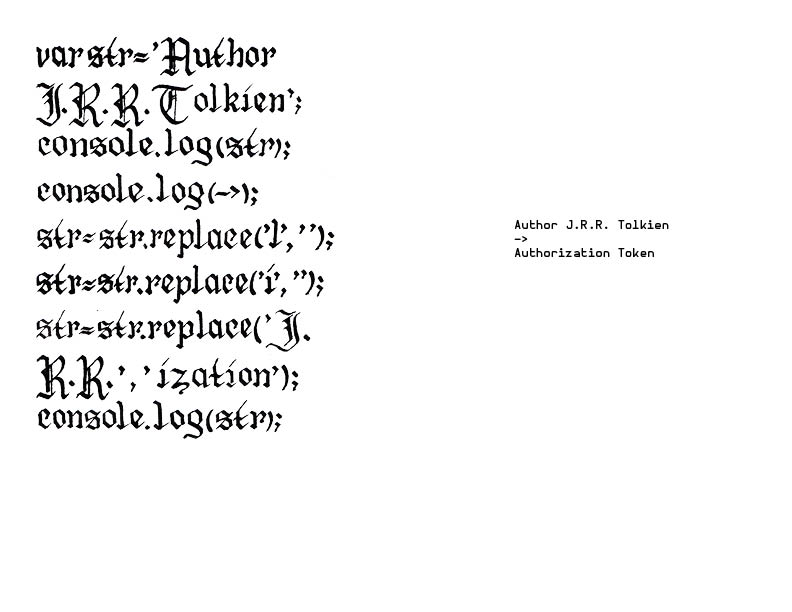 var str='Author
J.R.R.Tolkien';
console.log(str);
console.log(->);
str=str.replace('l','');
str=str.replace('i','');
str=str.replace('J.
R.R.','ization');
console.log(str);
Author J.R.R. Tolkien
->
Authorization Token